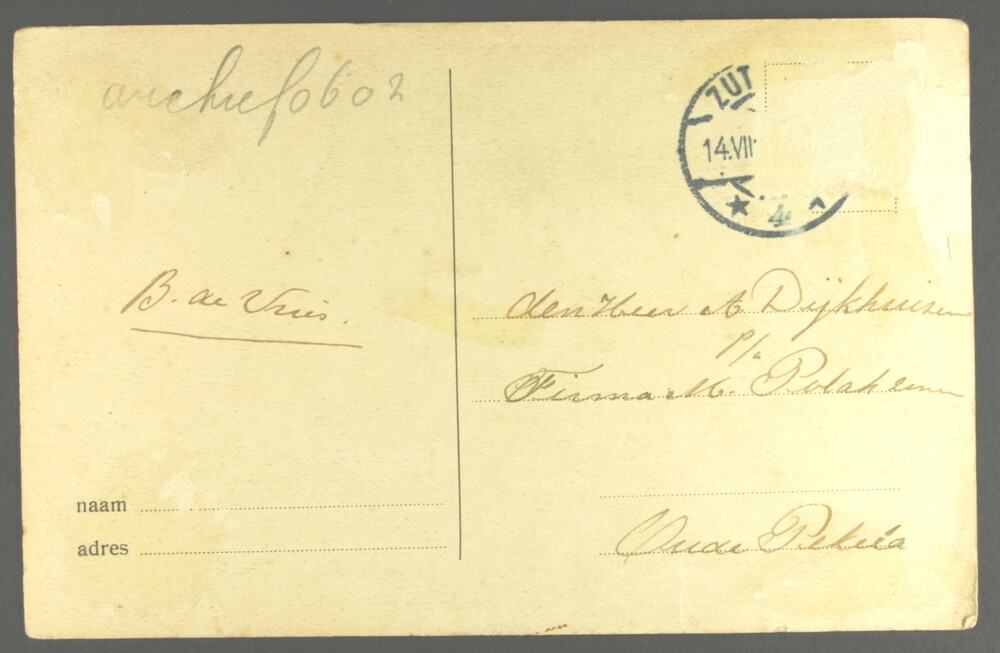 archief0602
ZUT
14.VII
4
B. de Vries.
den Heer A Dijkhuisen
P/a
Firma M. Polak zonen
naam
adres
Oude Pekela